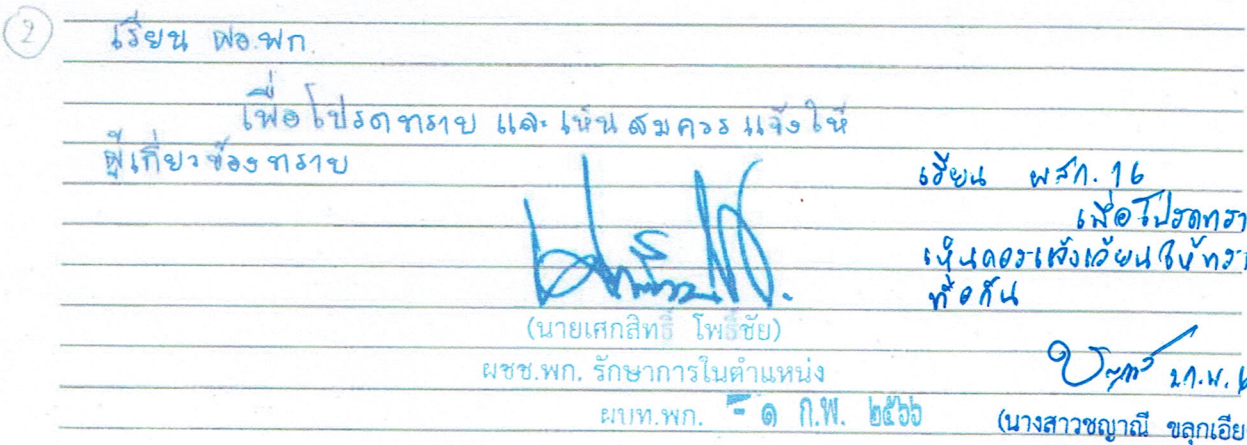 2
เรียน ผอ.พก.
เพื่อโปรดทราบ และเห็นสมควรแจ้งให้
ผู้เกี่ยวข้องทราบ
(นายเศกสิทธิ์ โพธิ์ชัย)
ผชช.พก. รักษาการในตำแหน่ง
ผบท.พก. - ๑ ก.พ. ๒๕๖๖
เรียน ผสก. 16
เพื่อโปรดทรา
เห็นควรแจ้งเวียนให้ทรา
ทั่วกัน
ก.พ.
(นางสาวชญาณี ขลุกเอีย